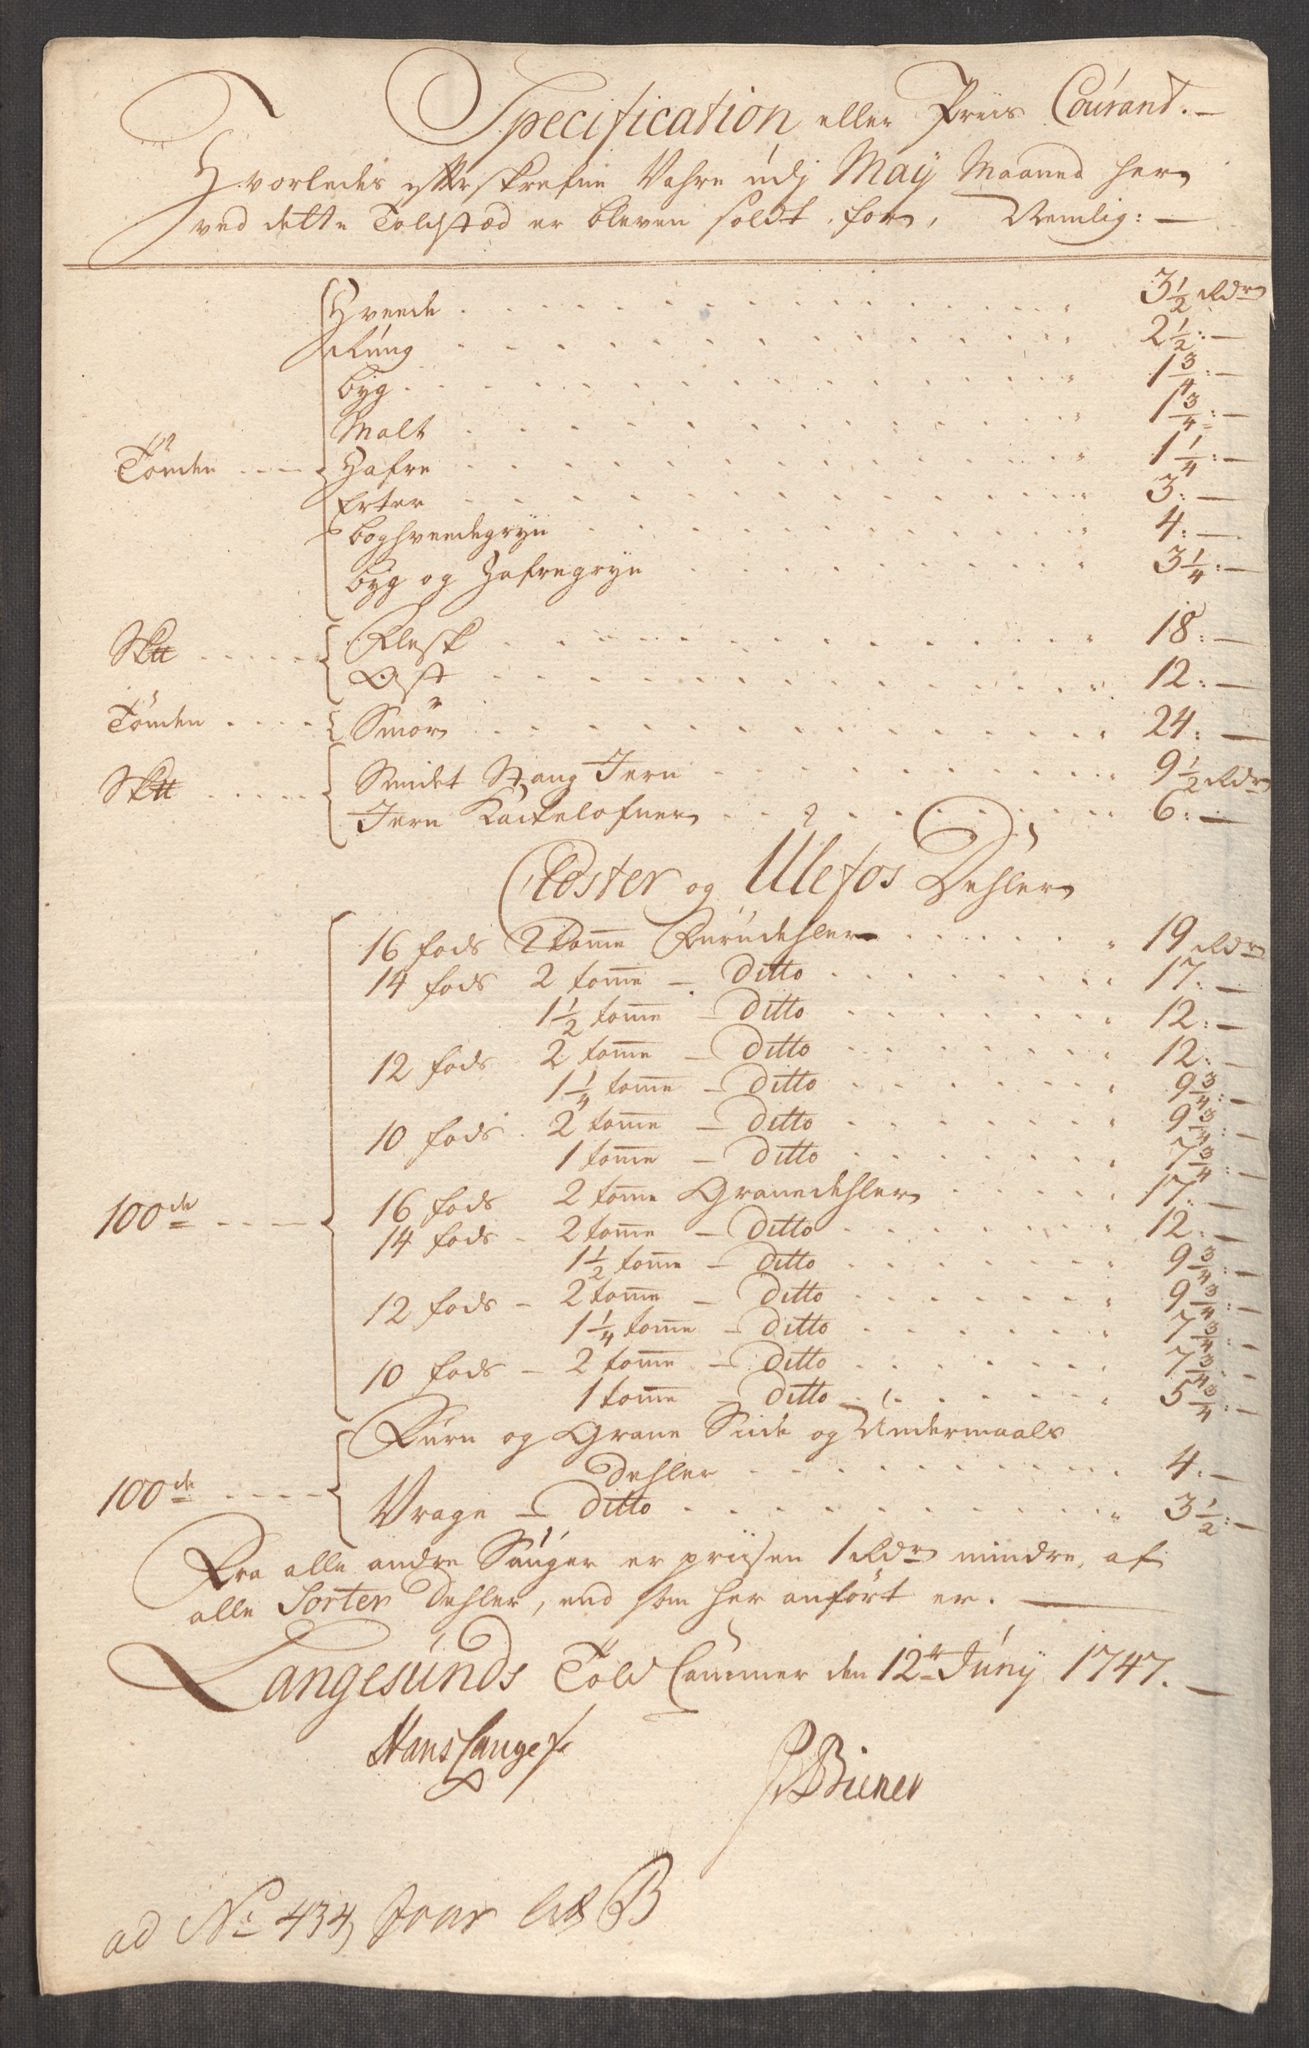 Specification eller Priis Courant. —
Hvorledes efterskrefne Vahre udj Maÿ Maaned her
ved dette Toldsted er bleven soldt for, Nemlig: —
Hvede . . . 3 1/2 Rdr
Rúug . . . 2 1/2 : —
Byg . . . 1 3/4 : —
Malt . . . 1 3/4 : —
Tönden . . . Hafre . . . 1 1/4 : —
Erter . . . 3 : —
Boghveedegryn . . . 4 : —
Byg og Hafregryn . . . 3 1/4 : —
Sk℔ . . . Flesk . . . 18 : —
Ost . . . 12 : —
Tönden . . . Smör . . . 24 : —
Sk℔ . . . Smidet Stang Jern . . . 9 1/2 Rdr
Jern Kackelofner . . . 6 : —
Closter og Ulefos Dehler
16 fods 2 tom̄e Furudehler . . . 19 Rdr
14 fods 2 tom̄e — Ditto . . . 17 : —
1 1/2 tom̄e — Ditto . . . 12 : —
12 fods 2 tom̄e — Ditto . . . 12 : —
1 1/4 tom̄e — Ditto . . . 9 3/4 : —
10 fods . 2 tom̄e — Ditto . . . 9 3/4 : —
1 tom̄e — Ditto . . . 7 3/4 : —
100de . . . 16 fods 2 tom̄e Granedehler . . . 17 : —
14 fods — 2 tom̄e — Ditto . . . 12 : —
1 1/2 tom̄e — Ditto . . . 9 3/4 : —
12 fods — 2 tom̄e — Ditto . . . 9 3/4 : —
1 1/4 tom̄e — Ditto . . . 7 3/4 : —
10 fods — 2 tom̄e — Ditto . . . 7 3/4 : —
1 tom̄e — Ditto . . . 5 3/4 : —
Furu og Grane Siide og Undermaals
Dehler . . . 4 : —
100de . . . Vrage — Ditto . . . 3 1/2 : —
Fra alle andre Sauger er priisen 1 Rdr mindre, af
alle Sorter Dehler, end som her anfört er. —
Langesúnds Told Cammer den 12te Júnÿ 1747. —
Hans Lange
Biener
ad No 434 Litr B